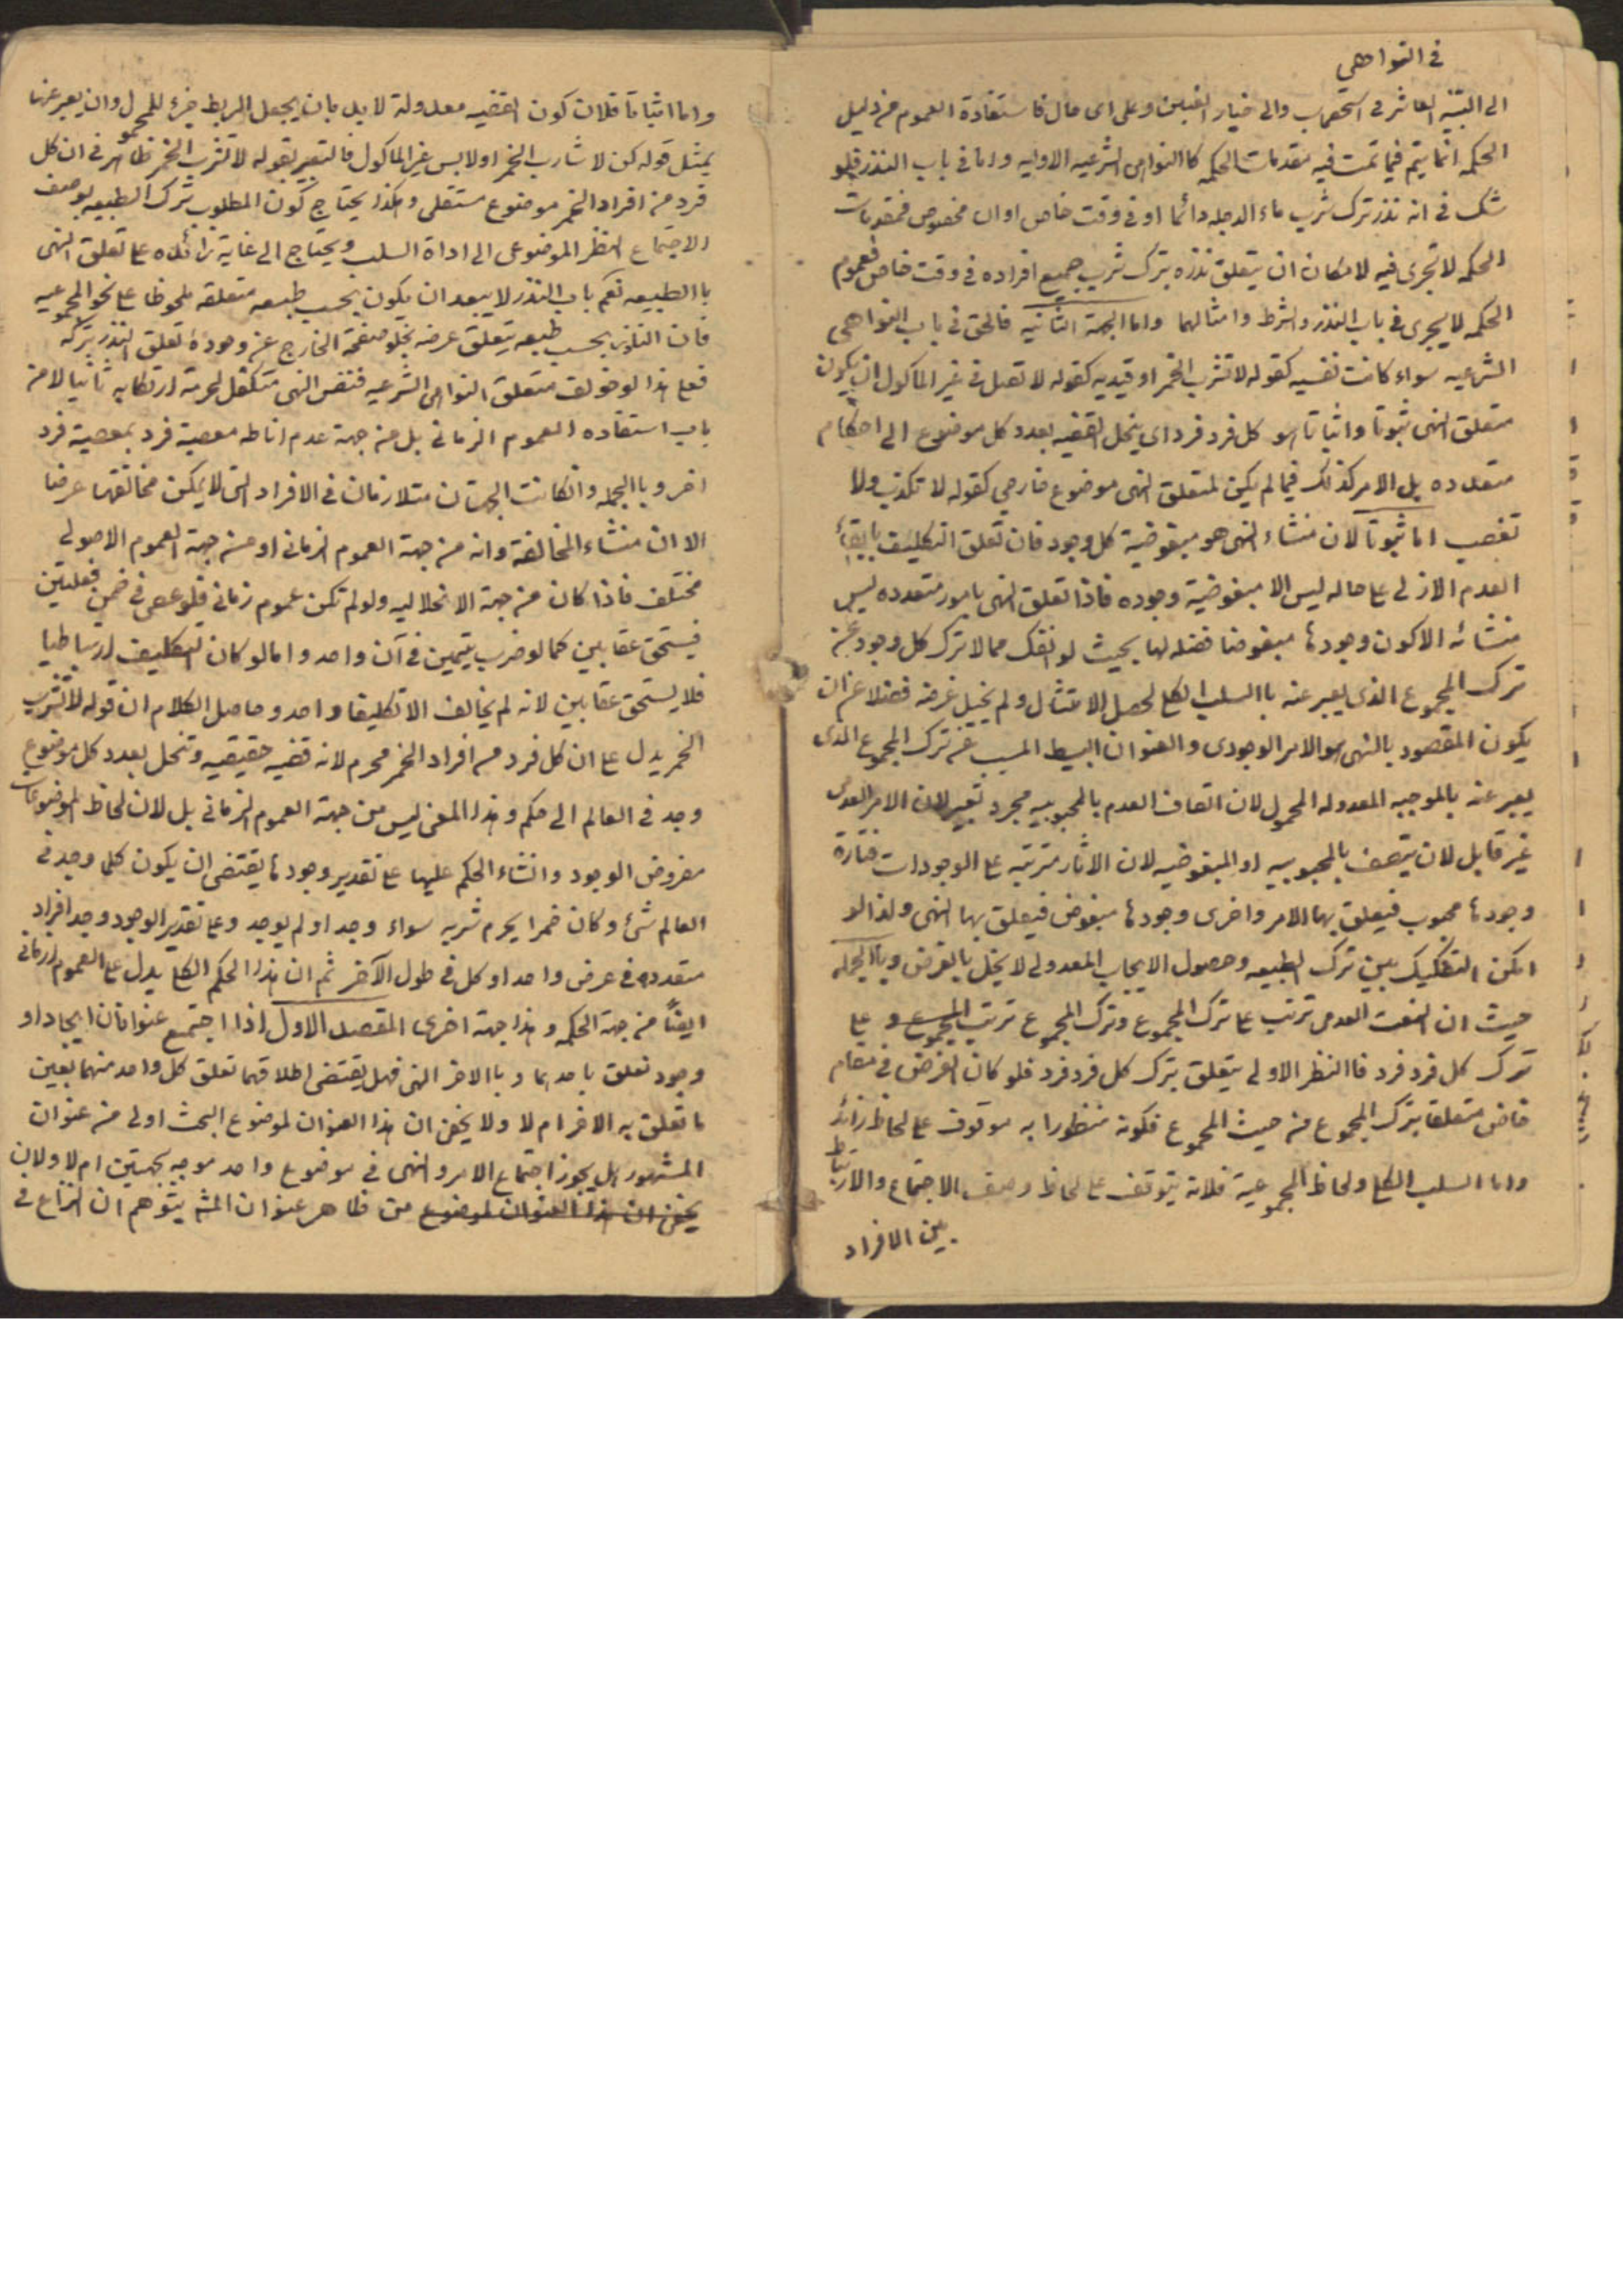 في النواهي
الى التنبيه العاشر في استصحاب والى خيار الغبن وعلى اى حال فاستفادة العموم من دليل
الحكمه انما يتم فيما تمت فيه مقدمات الحكمه كاالنواهى الشرعيه الاوليه واما في باب النذر فلو
شك في انه نذر ترك شرب ماء الدجله دائما او في وقت خاص او ان مخصوص فمقدمات
الحكمه لا تجرى فيه لامكان ان يتعلق نذره بترك شرب جميع افراده في وقت خاص فعموم
الحكمه لا يجرى في باب النذر والشرط وامثالهما واما الجهة الثانيه فالحق في باب النواهي
الشرعيه سواء كانت نفسيه كقوله لا تشرب الخمر او قيديه كقوله لا تصل في غير الماكول ان يكون
متعلق النهى ثبوتا واثباتا هو كل فرد فرد اى ينحل القضيه بعدد كل موضوع الى احكام
متعدده بل الامر كذلك فيما لم يكن لمتعلق النهى موضوع خارجي كقوله لا تكذب ولا
تغصب اما ثبوتا لان منشاء النهى هو مبغوضية كل وجود فان تعلق التكليف بابقاء
العدم الازلى على حاله ليس الا مبغوضية وجوده فاذا تعلق النهى بامور متعدده ليس
منشائه الا كون وجودها مبغوضا فضله لها بحيث لو انفك ممالا ترك كل وجود عن
ترك المجموع الذى يعبر عنه باالسلب الكلي لحصل الامتثال ولم يخل غرضه فضلا عن ان
يكون المقصود بالنهى هو الامر الوجودى والعنوان البسيط المسبب عن ترك المجموع الذى
يعبر عنه بالموجبه المعدوله المحمول لان اتصاف العدم بالمحبوبيه مجرد تعبير لان الامر العدمى
غير قابل لان يتصف بالمحبوبيه او المبغوضيه لان الاثار مترتبه على الوجودات فتارة
وجودها محبوب فيعلق بها الامر واخرى وجودها مبغوض فيعلق بها النهى ولذا لو
امكن التفكيك بين ترك الطبيعه وحصول الايجاب المعدولى لا يخل بالغرض وباالجمله
حيث ان النعت العدمى ترتب على ترك المجموع وترك المجموع ترتب على
ترك كل فرد فرد فاالنظر الاولى يتعلق بترك كل فرد فرد فلو كان الغرض في مقام
خاص متعلقا بترك المجموع من حيث المجموع فكونه منظورا به موقوف على لحاظ زائد
واما السلب الكلي ولحاظ المجموعية فلانه يتوقف على لحاظ وصف الاجتماع والارتباط
بين الافراد
واما اثباتا فلان كون القضيه معدولة لا بد بان يجعل الربط جزء للمحمول وان يعبر عنها
بمثل قوله كن لا شارب الخمر او لا بس غير الماكول فالتعبير بقوله لا تشرب الخمر ظاهر في ان كل
فرد من افراد الخمر موضوع مستقلى وهكذا يحتاج كون المطلوب ترك الطبيعه بوصف
الاجتماع النظر الموضوعى الى اداة السلب ويحتاج الى غاية زائده على تعلق النهى
باالطبيعه نعم باب النذر لا يبعد ان يكون بحسب طبعه متعلقه ملحوظا على نحو المجموعيه
فان الناذر بحسب طبعه يتعلق غرضه بخلو صفحة الخارج عن وجوده تعلق النذر بتركه
فعلى هذا لو خولف متعلق النواهى الشرعيه فنفس النهى متكفل لحرمة ارتكابه ثانيا لا من
باب استفاده العموم الزمانى بل من جهة عدم اناطه معصية فرد بمعصية فرد
اخر وباالجمله وان كانت الجهتان متلازمان في الافراد التى لا يمكن مخالفتها عرضا
الا ان منشاء المخالفة وانه من جهة العموم الزمانى او من جهة العموم الاصولى
مختلف فاذا كان من جهة الانحلاليه ولو لم تكن عموم زمانى فلو عصى في ضمن فعليتين
فيستحق عقابين كما لو ضرب يتيمين في آن واحد واما لو كان التكليف ارتباطيا
فلا يستحق عقابين لانه لم يخالف الا تكليفا واحد وحاصل الكلام ان قوله لا تشرب
الخمر يدل على ان كل فرد من افراد الخمر محرم لانه قضيه حقيقيه وتنحل بعدد كل موضوع
وجد في العالم الى حكم وهذا المعنى ليس من جهة العموم الزمانى بل لان لحاظ الموضوعات
مفروض الوجود وانشاء الحكم عليها على تقدير وجودها يقتضى ان يكون كلما وجد في
العالم شئ وكان خمرا يحرم شربه سواء وجد او لم يوجد وعلى تقدير الوجود وجد افراد
متعدده في عرض واحد او كل في طول الآخر ثم ان هذا الحكم الكلي يدل على العموم الزمانى
ايضًا من جهة الحكمه وهذا جهة اخرى المقصد الاول اذا اجتمع عنوانان ايجادا و
وجود تعلق باحدهما وباالاخر النهى فهل يقتضى اطلاقهما تعلق كل واحد منهما بعين
ما تعلق به الاخر ام لا ولا يخفى ان هذا العنوان لموضوع البحث اولى من عنوان
المشهور هل يجوز اجتماع الامر والنهى في موضوع واحد موجه بجهتين ام لا ولان
يخفى ان هذا العنوان لموضوع من ظاهر عنوان المشهور يتوهم ان النزاع في